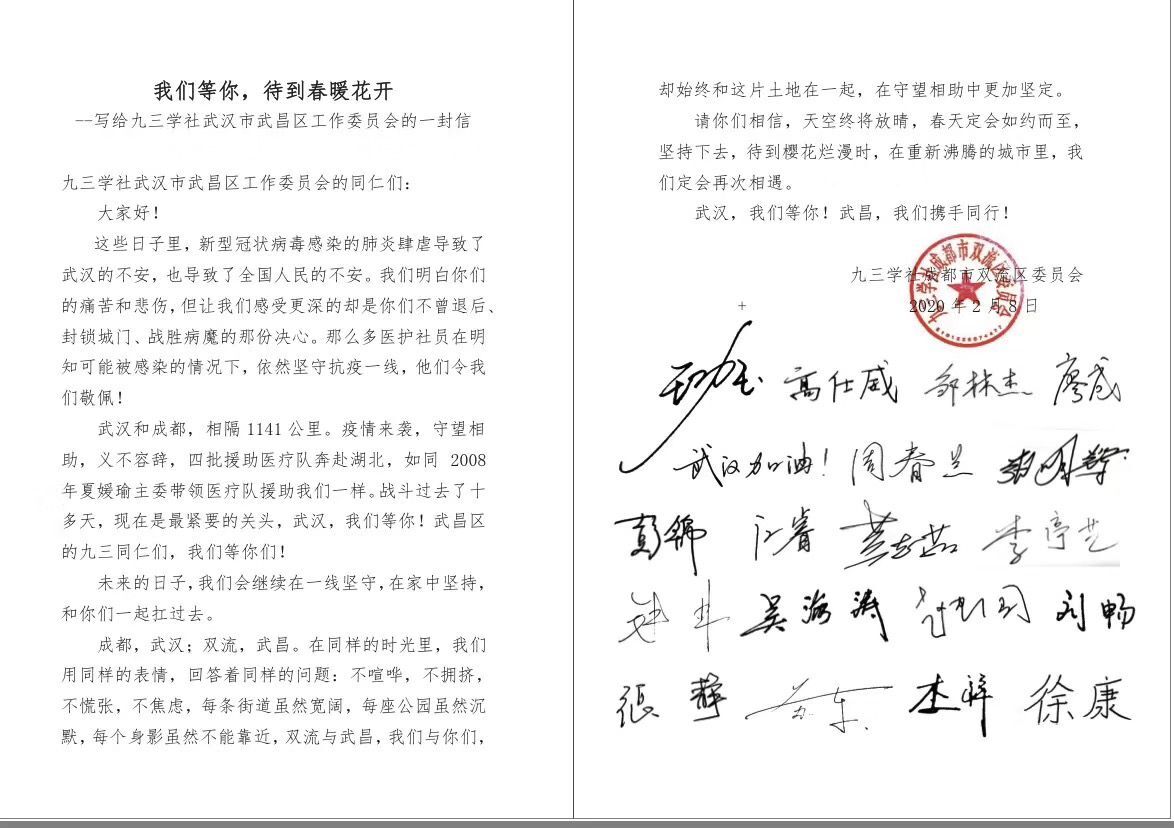 我们等你，待到春暖花开
--写给九三学社武汉市武昌区工作委员会的一封信
九三学社武汉市武昌区工作委员会的同仁们：
大家好！
这些日子里，新型冠状病毒感染的肺炎肆虐导致了
武汉的不安，也导致了全国人民的不安。我们明白你们
的痛苦和悲伤，但让我们感受更深的却是你们不曾退后、
封锁城门、战胜病魔的那份决心。那么多医护社员在明
知可能被感染的情况下，依然坚守抗疫一线，他们令我
们敬佩！
武汉和成都，相隔 1141 公里。疫情来袭，守望相
助，义不容辞，四批援助医疗队奔赴湖北，如同 2008
年夏媛瑜主委带领医疗队援助我们一样。战斗过去了十
多天，现在是最紧要的关头，武汉，我们等你！武昌区
的九三同仁们，我们等你们！
未来的日子，我们会继续在一线坚守，在家中坚持，
和你们一起扛过去。
成都，武汉；双流，武昌。在同样的时光里，我们
用同样的表情，回答着同样的问题：不喧哗，不拥挤，
不慌张，不焦虑，每条街道虽然宽阔，每座公园虽然沉
默，每个身影虽然不能靠近，双流与武昌，我们与你们，
却始终和这片土地在一起，在守望相助中更加坚定。
请你们相信，天空终将放晴，春天定会如约而至，
坚持下去，待到樱花烂漫时，在重新沸腾的城市里，我
们定会再次相遇。
武汉，我们等你！武昌，我们携手同行！
九三学社成都市双流区委员会
2020 年 2 月 8 日
九三学社成都市双流区委员会
高仕威 邹林杰 廖成
武汉加油！ 周春兰
彭锦 江睿 李亭艺
吴海涛 刘畅
张静 徐康